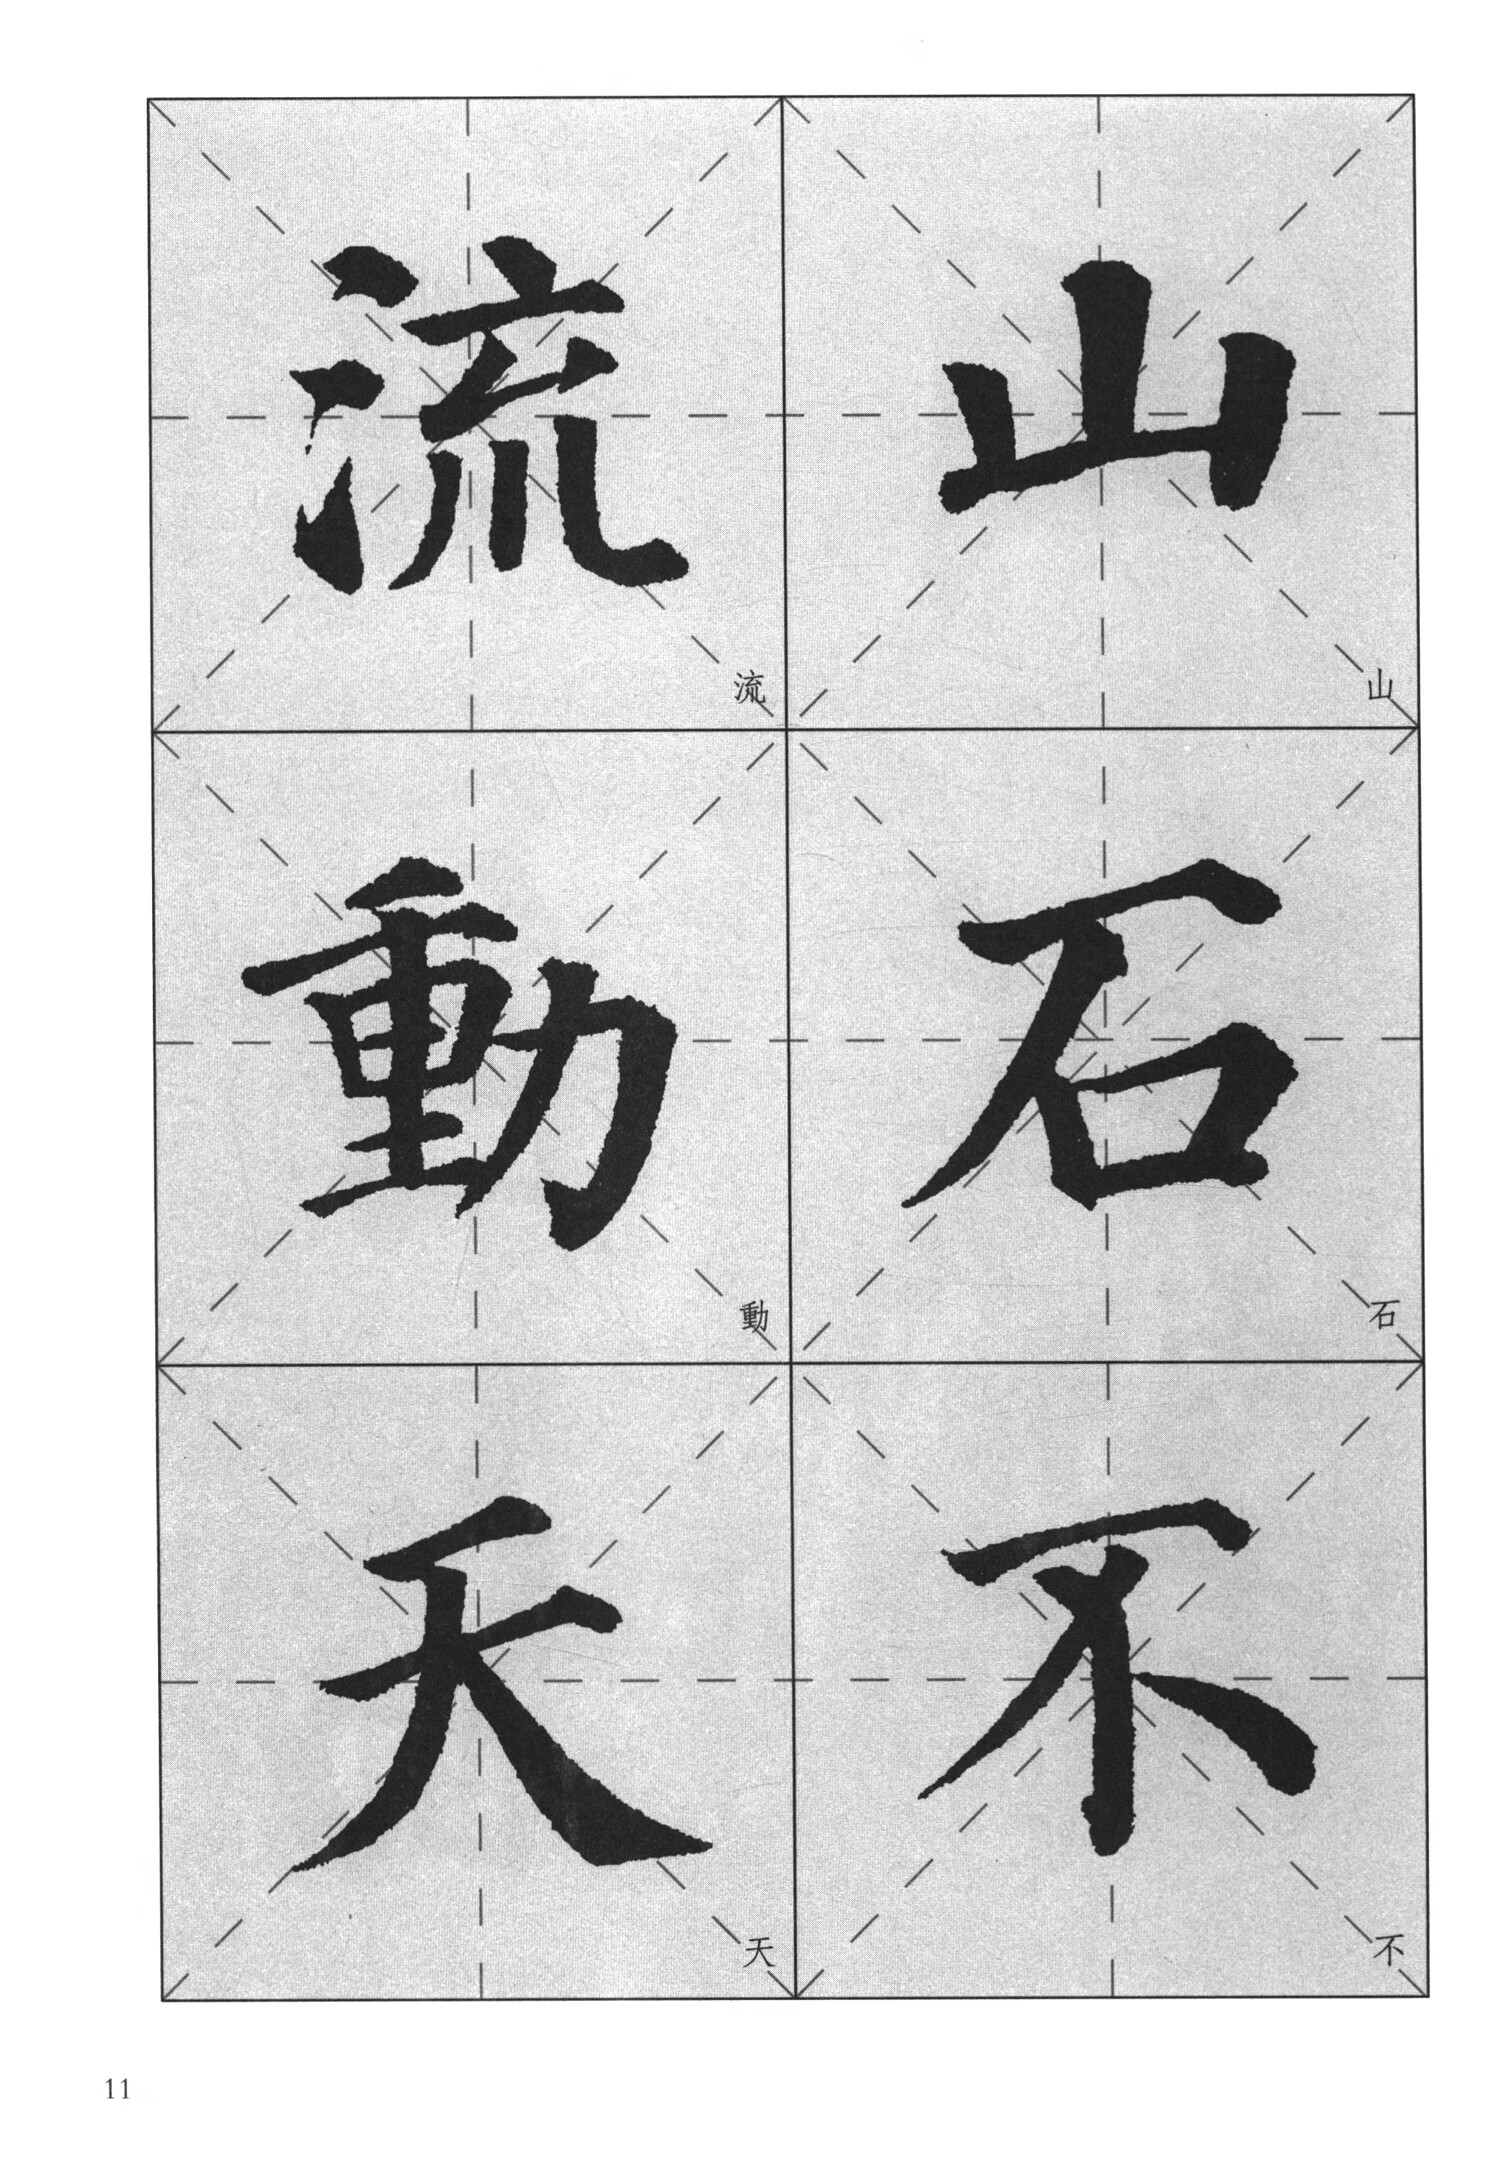 山
山
石
石
不
不
流
流
動
動
天
天
11